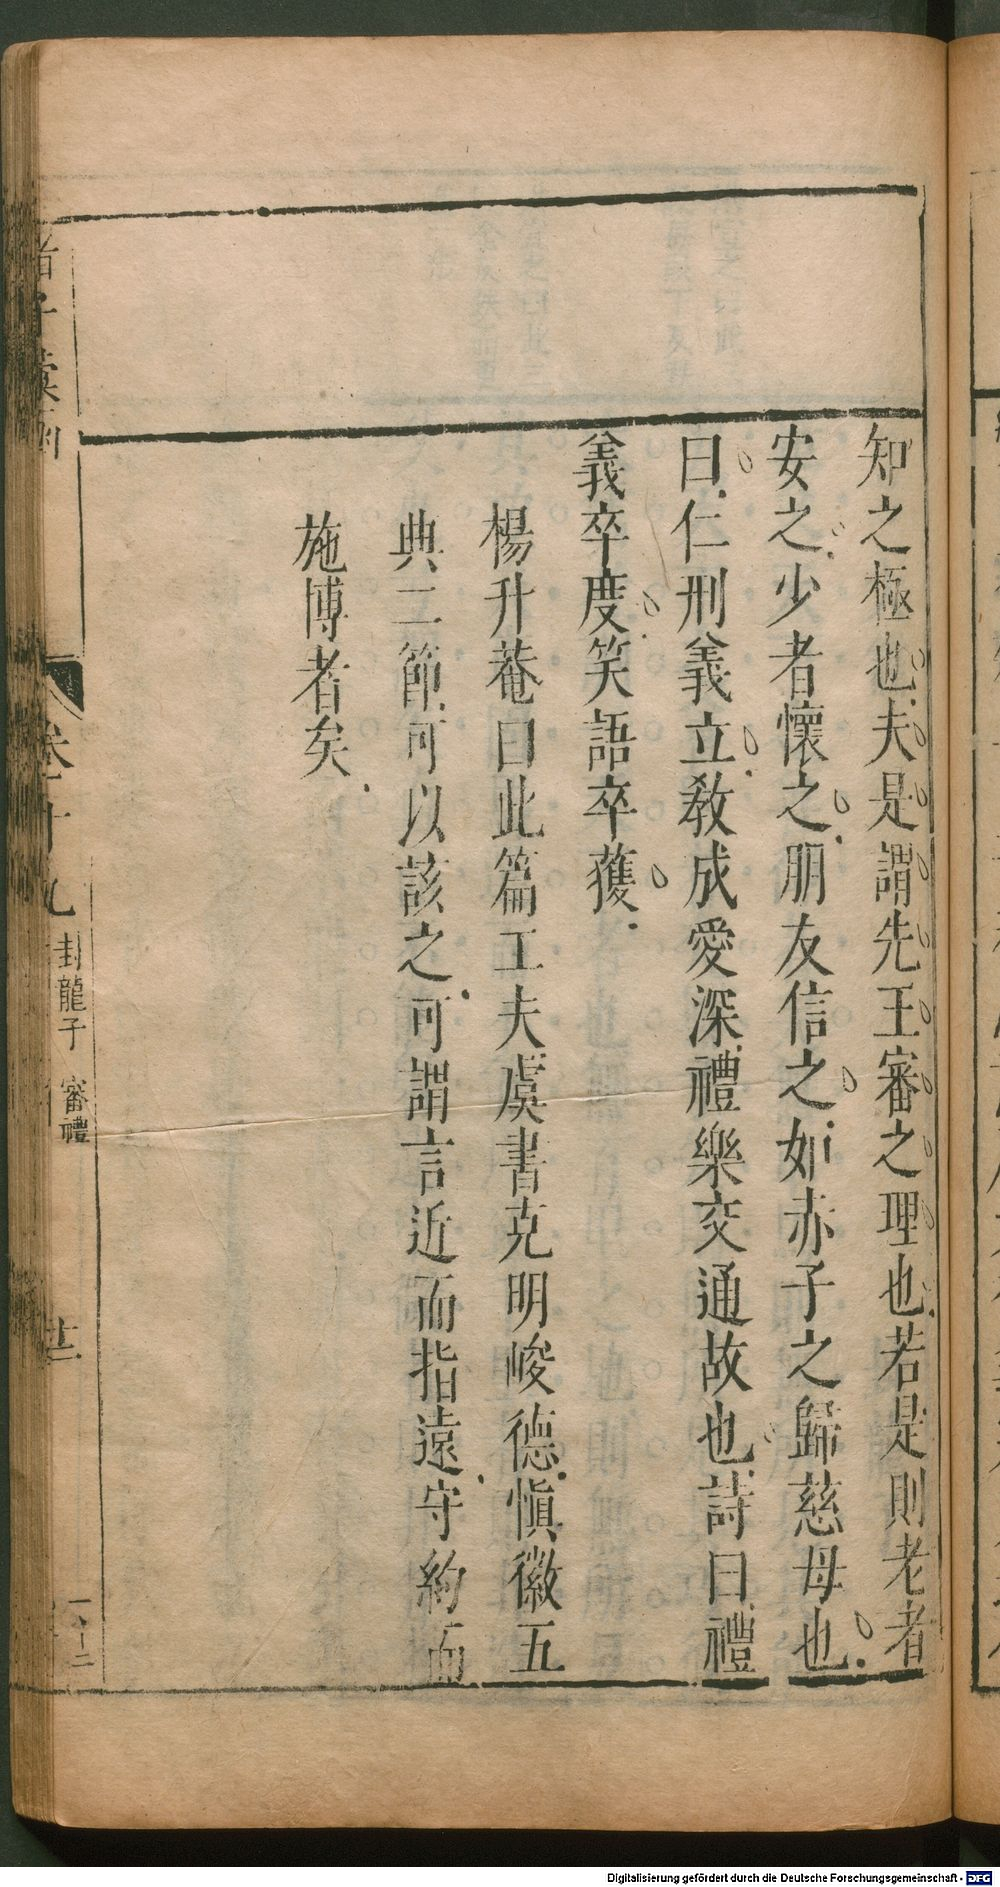 知之極也夫是謂先王審之理也若是則老者
安之少者懷之朋友信之如赤子之歸慈母也
曰仁刑義立教成愛深禮樂交通故也詩曰禮
義卒度笑語卒獲
楊升菴曰此篇工夫虞書克明峻德愼徽五
典二節可以該之可謂言近而指遠守約而
施博者矣
諸子彙函
卷十九
封龍子 審禮
十二
Digitalisierung gefördert durch die Deutsche Forschungsgemeinschaft - DFG